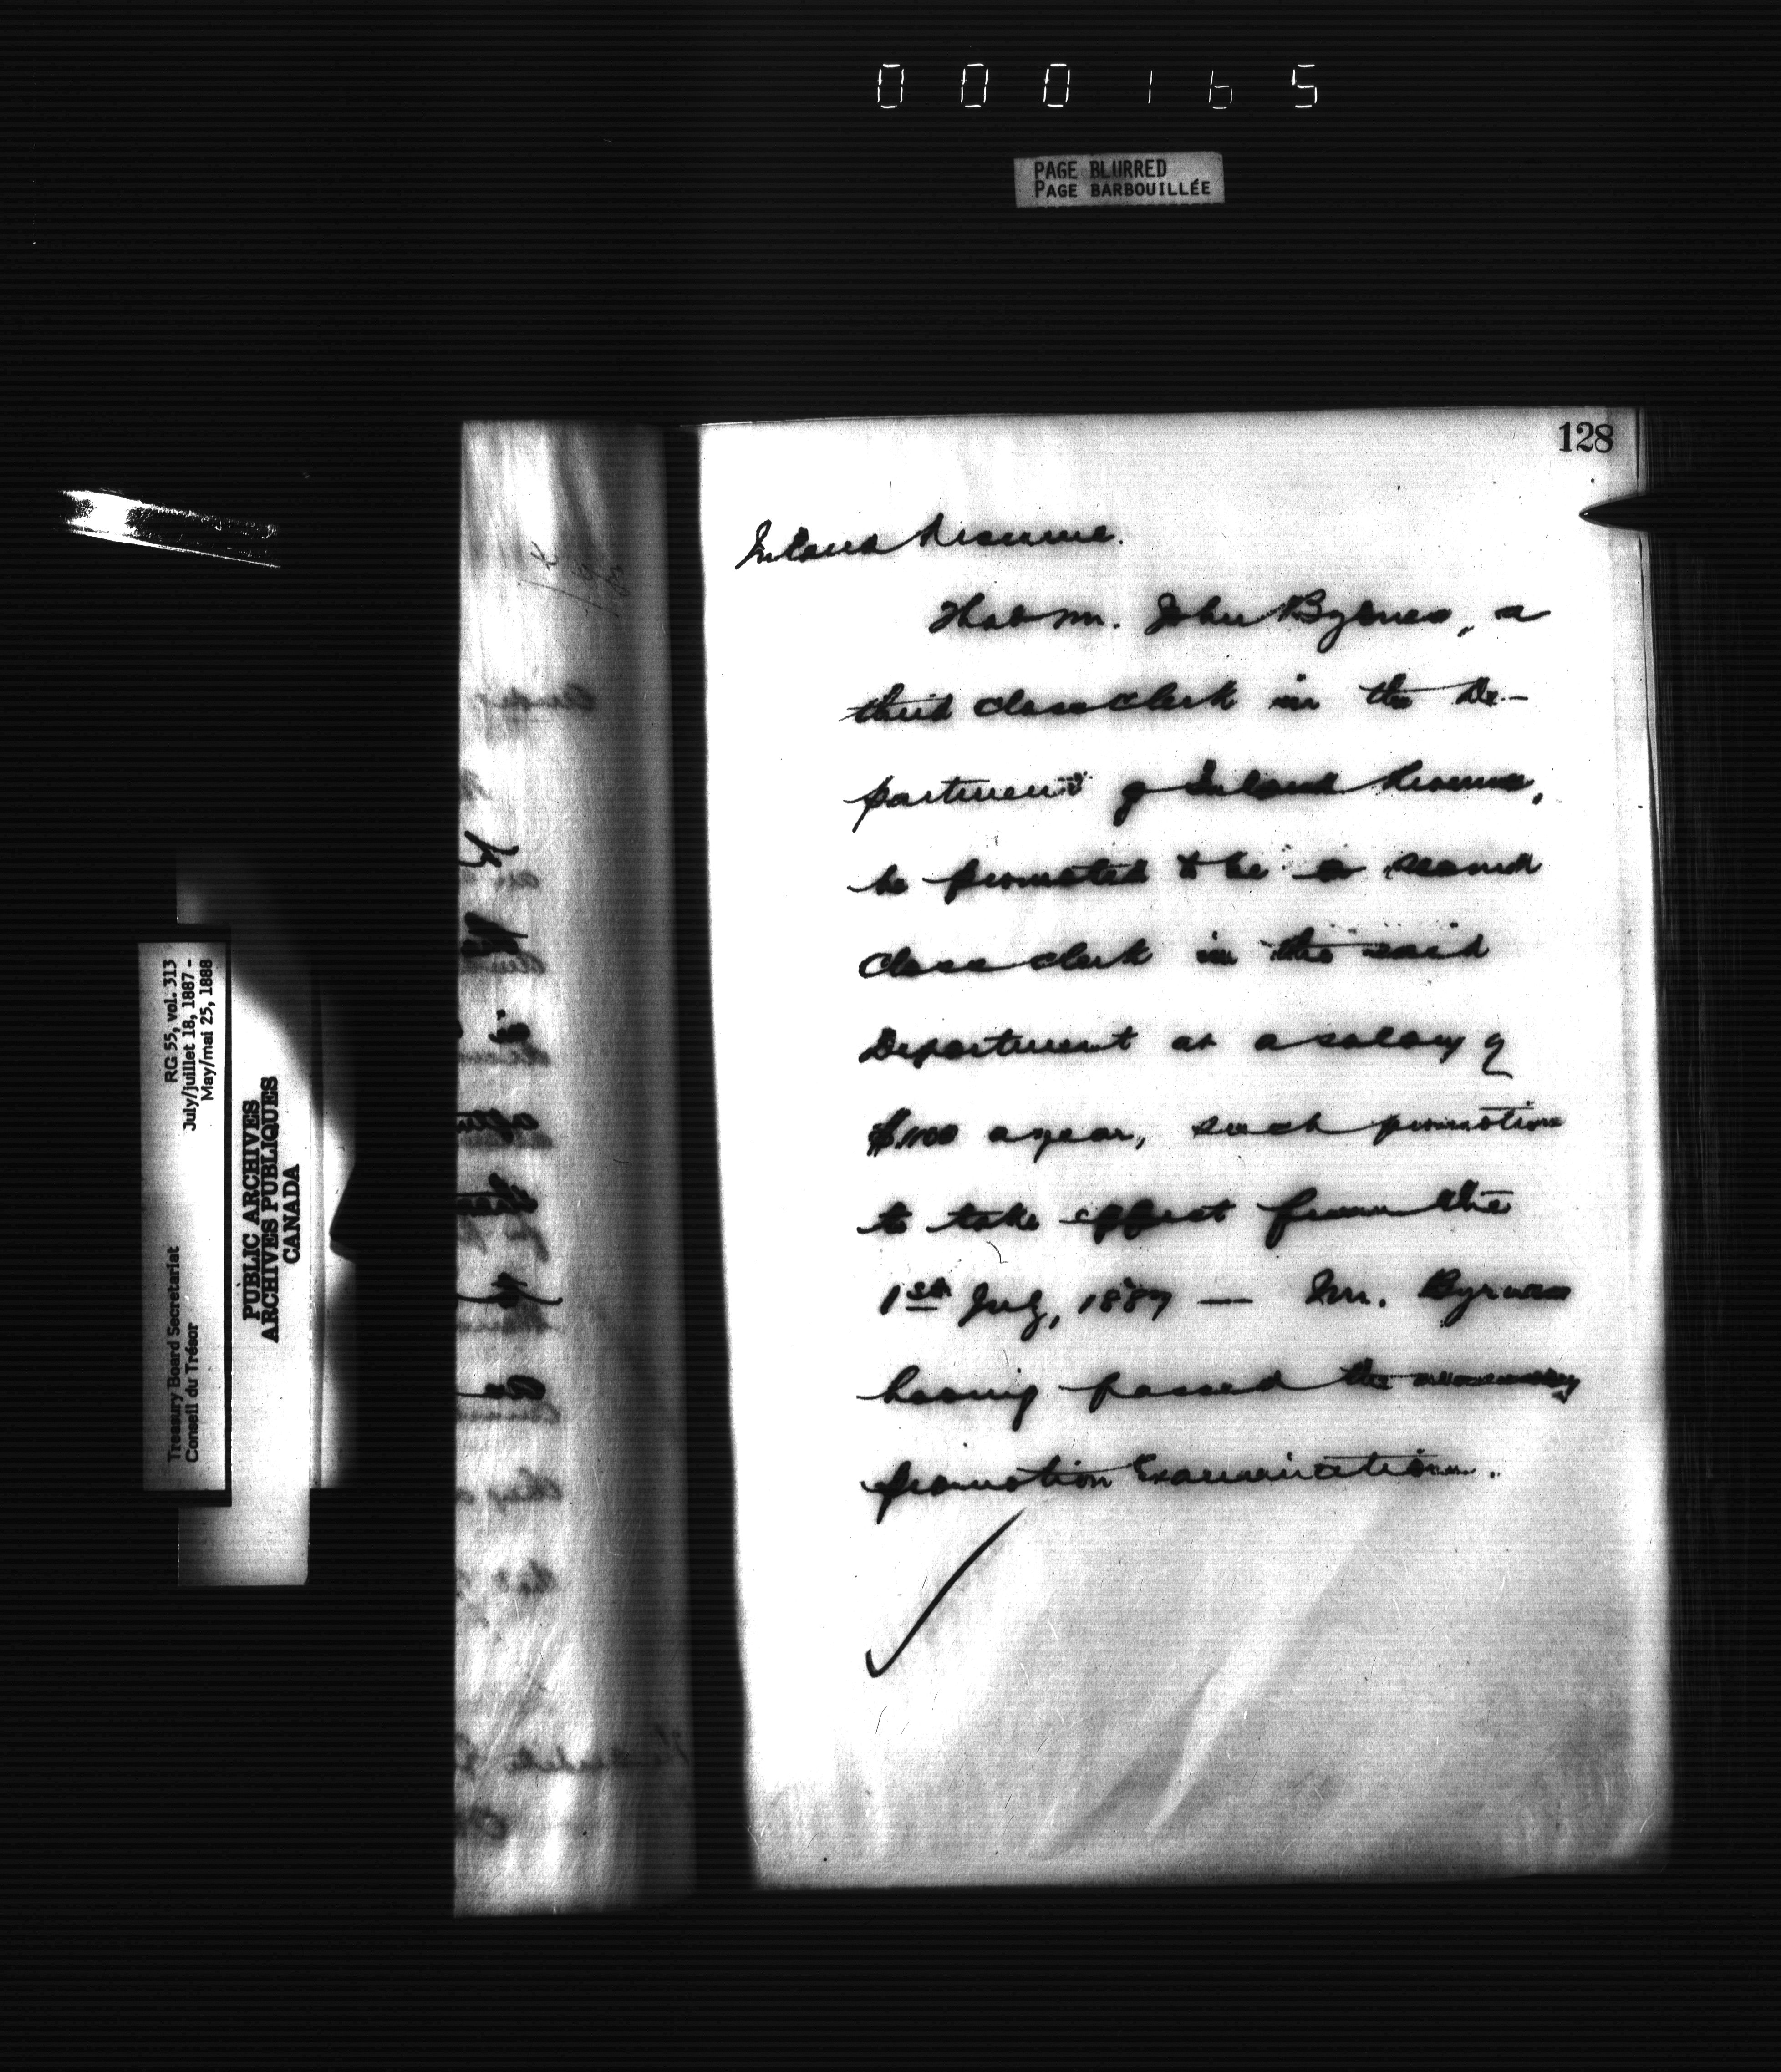 000165
PAGE BLURRED
PAGE BARBOUILLÉE
128
Inland Revenue.
That Mr. John Byrnes, a
third class clerk in the De-
partment of Inland Revenue,
be promoted to be a second
class clerk in the said
Department at a salary of
$1100 a year, such promotion
to take effect from the
1st July, 1887 — Mr. Byrnes
having passed the necessary
promotion Examination.
RG 55, vol. 313
July/juillet 18, 1887 -
May/mai 25, 1888
Treasury Board Secretariat
Conseil du Trésor
PUBLIC ARCHIVES
ARCHIVES PUBLIQUES
CANADA